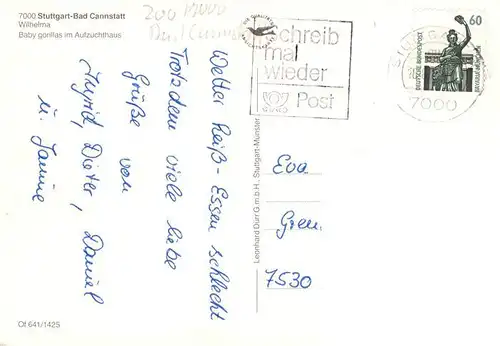 7000 Stuttgart-Bad Cannstatt
Wilhelma
Baby gorillas im Aufzuchthaus
Wetter heiß - Essen schlecht
Trotzdem viele liebe
Grüße von
Ingrid, Dieter, Daniel
u. Janine
Of 641/1425
Leonhard Dürr G.m.b.H., Stuttgart-Münster
Schreib
mal
wieder
Post
STUTTGA
7000
60
DEUTSCHE BUNDESPOST
BAVARIA MÜNCHEN
Eva
Gren.
7530
200